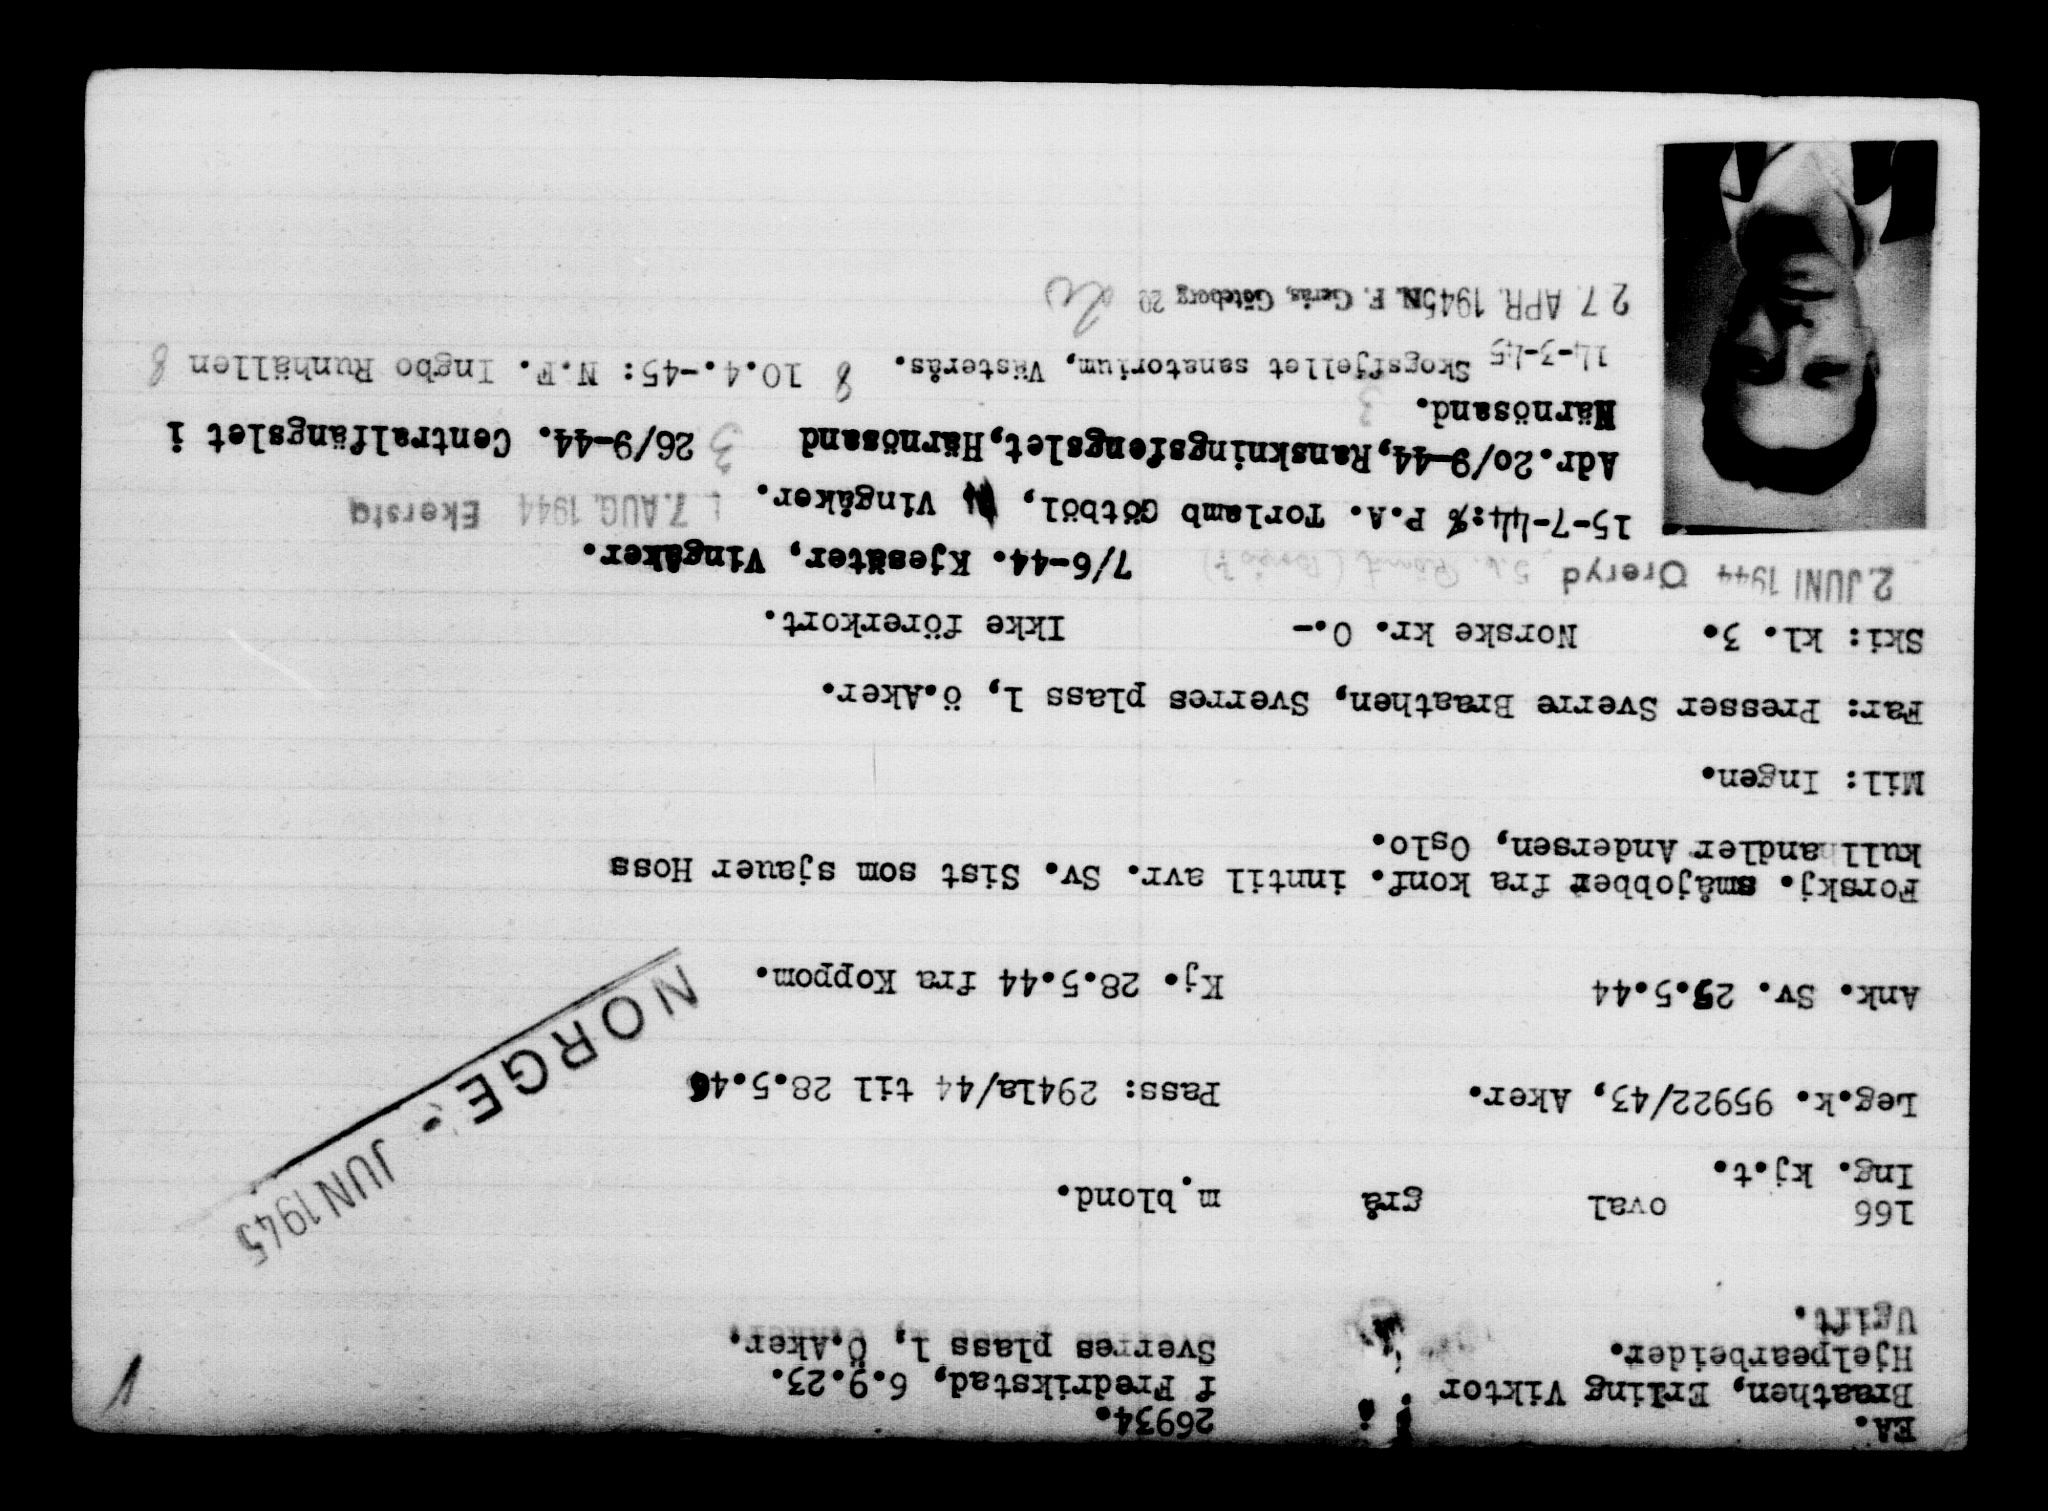 EÅ. 26934.
Braathen, Erling Viktor f Fredrikstad, 6.9.23.
Hjelpearbeider. Sverres plass 1, Ö.Aker.
Ugift.
166 oval grå m.blond.
Ing. kj.t.
JUN 1945
NORGE.
Leg.k. 95922/43, Aker. Pass: 2941a/44 till 28.5.46
Ank. Sv. 25.5.44 Kj. 28.5.44 fra Koppom.
Forskj. småjobber fra konf. inntil avr. Sv. Sist som sjauer Hoss
kullhandler Andersen, Oslo.
Mil: Ingen.
Far: Presser Sverre Braathen, Sverres plass 1, ö.Aker.
Ski: kl. 3. Norske kr. 0.- Ikke förerkort.
2.JUNI 1944 Öreryd 7/6-44. Kjesäter, Vingåker.
15-7-44:% P.A. Torlamb Götböl, Vingåker. 7.AUG. 1944 Ekersta
Adr.20/9-44,Ranskningsfengslet,Härnösand 3 26/9-44. Centralfängslet i
Härnösand. 3
14-3-45 Skogsfjellet sanatorium, Västerås. 8 10.4.-45: N.F. Ingbo Runhällen 8
27. APR. 1945 N. F. Gerås, Göteborg 20